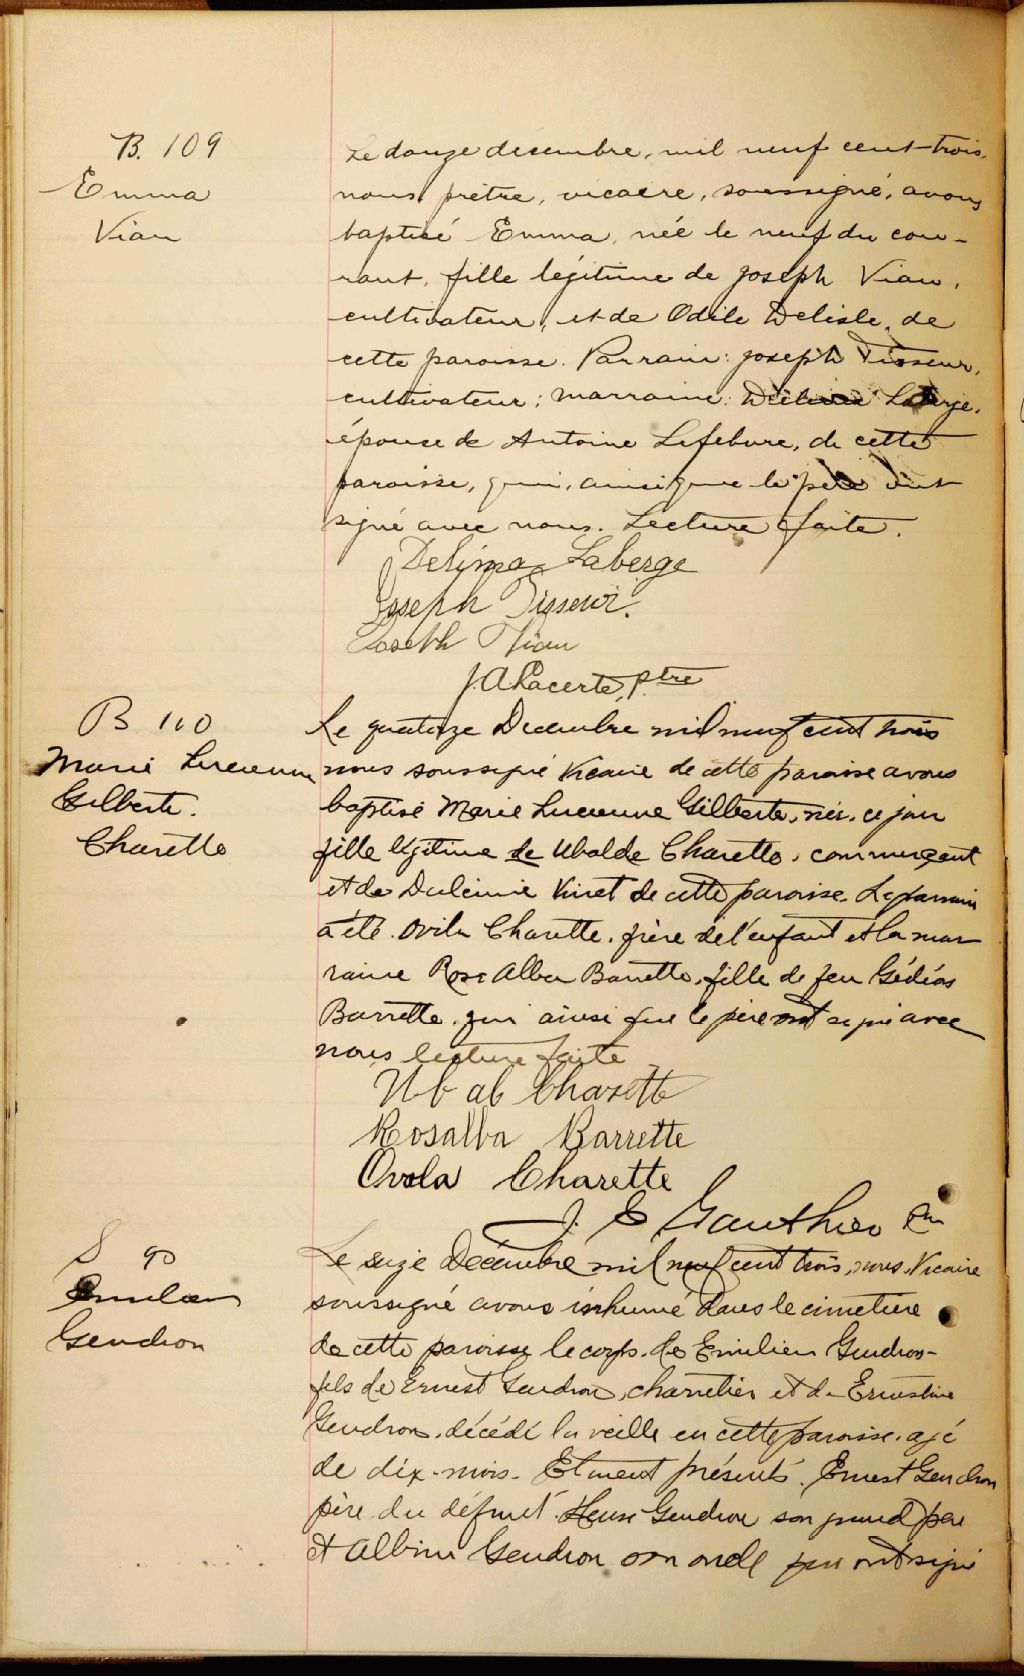 B. 109
Emma
Viau
Le douze décembre, mil neuf cent trois,
nous, prêtre, vicaire, soussigné, avons
baptisé Emma, née le neuf du cou-
rant, fille légitime de Joseph Viau,
cultivateur, et de Odile Delisle, de
cette paroisse. Parrain: Joseph Tisseur,
cultivateur; marraine: Laberge,
épouse de Antoine Lefebvre, de cette
paroisse, qui, ainsi que le père ont
signé avec nous. Lecture faite.
Delima Laberge
Joseph Tisseur.
Joseph Viau
J. A. Lacerte, ptre
B 110
Marie Lucienne
Gilberte.
Charette
Le quatorze Decembre mil neuf cent trois
nous soussigné Vicaire de cette paroisse avons
baptisé Marie Lucienne Gilberte, née, ce jour
fille légitime de Ubalde Charette, commerçant
et de Dulcinie Viret de cette paroisse. Le parrain
a été Ovila Charette, frère de l'enfant et la mar
raine Rose Alba Barrette, fille de feu Gédéas
Barrette, qui ainsi que le père ont signé avec
nous lecture faite
Ub al Charette
Rosalba Barrette
Ovola Charette
J. E Gauthier
S 90
Emilien
Gendron
Le seize Décembre mil neuf cent trois, nous, Vicaire
soussigné avons inhumé dans le cimetière
de cette paroisse le corps de Emilien Gendron
fils de Ernest Gendron, charretier et de Ernestine
Gendron, décédé la veille en cette paroisse, agé
de dix-mois. Etaient présents Ernest Gendron
père du défunt Gendron son grand père
et Albini Gendron son oncle qui ont signé